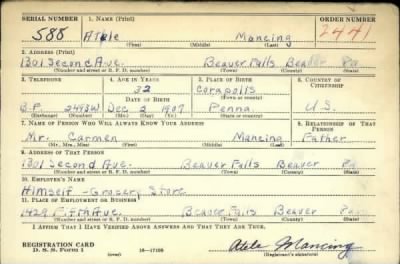 SERIAL NUMBER 1. NAME (Print) ORDER NUMBER
588 Atele Mancing 2441
(First) (Middle) (Last)
2. ADDRESS (Print)
1301 Second Ave. Beaver Falls Beaver Pa
(Number and street or R. F. D. number) (Town) (County) (State)
3. TELEPHONE 4. AGE IN YEARS 5. PLACE OF BIRTH 6. COUNTRY OF CITIZENSHIP
32 Coraopolis
DATE OF BIRTH
B.F. 2493W Dec. 2 1907 Penna. U.S.
(Exchange) (Number) (Mo.) (Day) (Yr.) (State or country)
7. NAME OF PERSON WHO WILL ALWAYS KNOW YOUR ADDRESS 8. RELATIONSHIP OF THAT PERSON
Mr. Carmen Mancing Father
(Mr., Mrs., Miss) (First) (Middle) (Last)
9. ADDRESS OF THAT PERSON
1301 Second Ave. Beaver Falls Beaver Pa
(Number and street or R. F. D. number) (Town) (County) (State)
10. EMPLOYER'S NAME
Himself - Grocery Store
11. PLACE OF EMPLOYMENT OR BUSINESS
1429 Fifth Ave. Beaver Falls Beaver Pa.
(Number and street or R. F. D. number) (Town) (County) (State)
I AFFIRM THAT I HAVE VERIFIED ABOVE ANSWERS AND THAT THEY ARE TRUE.
REGISTRATION CARD
D. S. S. Form 1 (over) 16—17105 Atele Mancing
(Registrant's signature)